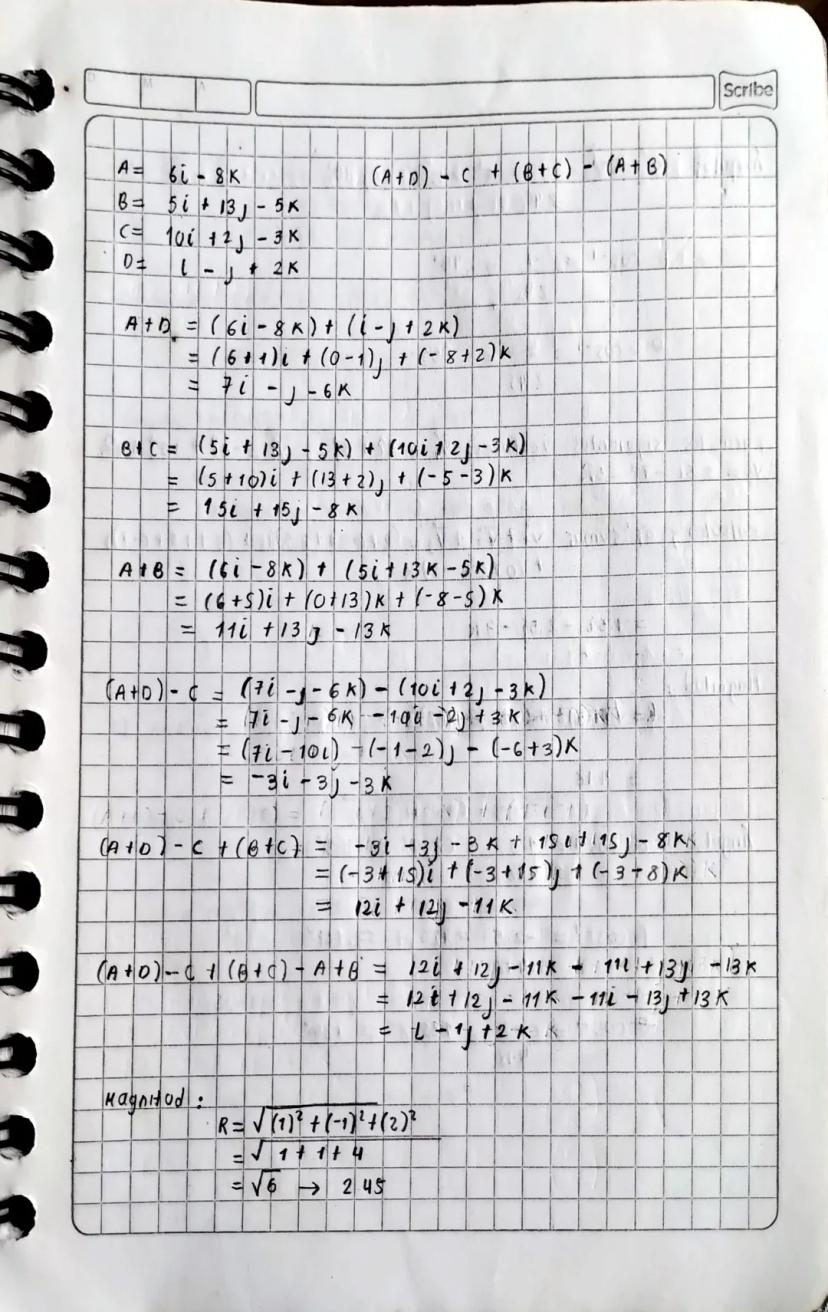 Scribe
A= 6i - 8K (A+D) - C + (B+C) - (A+B)
B= 5i + 13j - 5K
C= 10i + 2j - 3K
D= i - j + 2K
A+D = (6i - 8K) + (i - j + 2K)
= (6+1)i + (0-1)j + (-8+2)K
= 7i - j - 6K
B+C = (5i + 13j - 5K) + (10i + 2j - 3K)
= (5+10)i + (13+2)j + (-5-3)K
= 15i + 15j - 8K
A+B = (6i - 8K) + (5i + 13K - 5K)
= (6+5)i + (0+13)K + (-8-5)K
= 11i + 13j - 13K
(A+D) - C = (7i - j - 6K) - (10i + 2j - 3K)
= 7i - j - 6K - 10i - 2j + 3K
= (7i - 10i) - (-1-2)j - (-6+3)K
= -3i - 3j - 3K
(A+D) - C + (B+C) = -3i - 3j - 3K + 15i + 15j - 8K
= (-3+15)i + (-3+15)j + (-3-8)K
= 12i + 12j - 11K
(A+D) - C + (B+C) - A+B = 12i + 12j - 11K - 11i + 13j - 13K
= 12i + 12j - 11K - 11i - 13j + 13K
= i - 1j + 2K
Magnitud :
R = √(1)² + (-1)² + (2)²
= √1+1+4
= √6 → 2 45